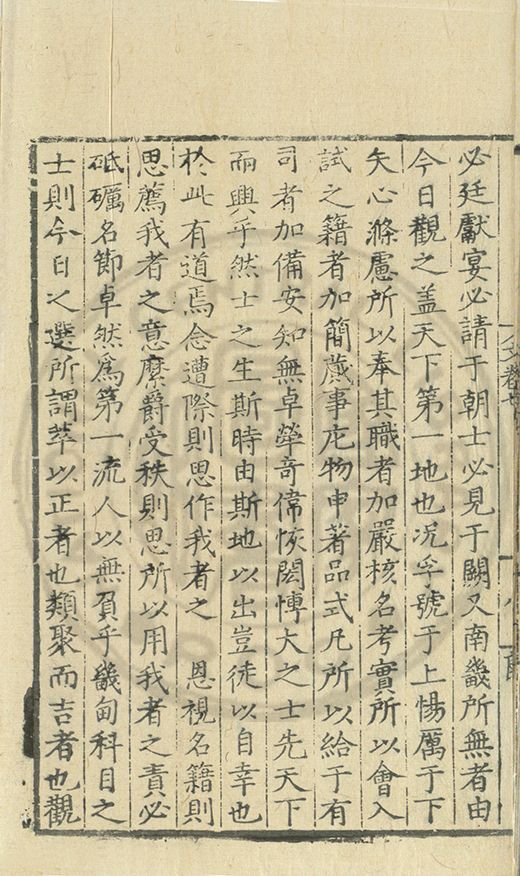 必廷獻宴必請于朝士必見于闕又南畿所無者由
今日觀之盖天下第一地也况孚號于上惕厲于下
矢心滌慮所以奉其職者加嚴核名考實所以會入
試之籍者加簡蕆事庀物申著品式凡所以給于有
司者加備安知無卓犖竒偉恢閎博大之士先天下
而興乎然士之生斯時由斯地以出豈徒以自幸也
於此有道焉念遭際則思作我者之　恩視名籍則
思薦我者之意縻爵受秩則思所以用我者之責必
砥礪名節卓然爲第一流人以無負乎畿甸科目之
士則今日之選所謂萃以正者也類聚而吉者也觀